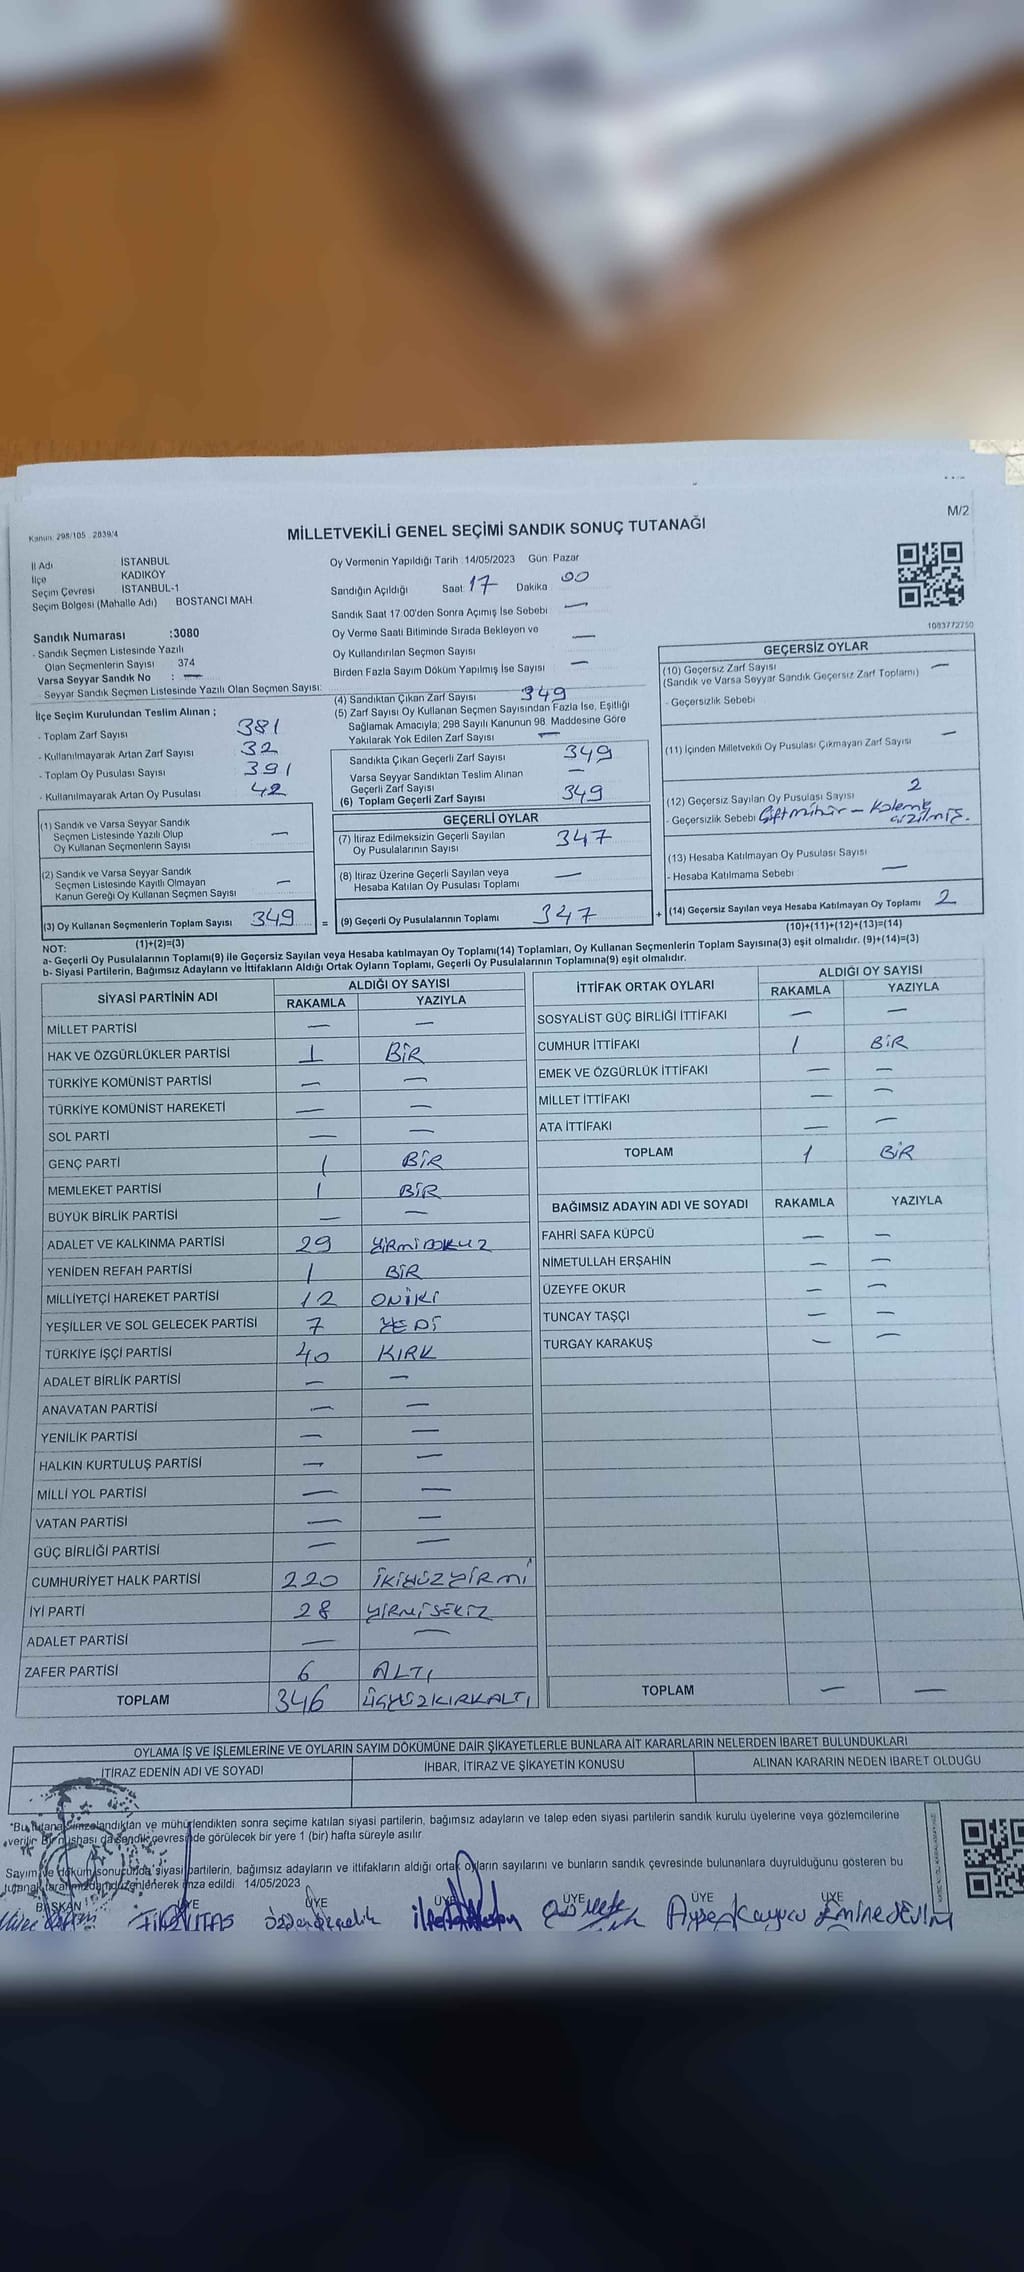 M/2
Kanun: 298/105 2839/4
MİLLETVEKİLİ GENEL SEÇİMİ SANDIK SONUÇ TUTANAĞI
İl Adı İSTANBUL
İlçe KADIKÖY
Seçim Çevresi İSTANBUL-1
Seçim Bölgesi (Mahalle Adı) BOSTANCI MAH.
Sandık Numarası :3080
- Sandık Seçmen Listesinde Yazılı
Olan Seçmenlerin Sayısı 374
Varsa Seyyar Sandık No : —
- Seyyar Sandık Seçmen Listesinde Yazılı Olan Seçmen Sayısı:
Oy Vermenin Yapıldığı Tarih :14/05/2023 Gün: Pazar
Sandığın Açıldığı Saat 17 Dakika 00
Sandık Saat 17:00'den Sonra Açımış İse Sebebi —
Oy Verme Saati Bitiminde Sırada Bekleyen ve
Oy Kullandırılan Seçmen Sayısı —
Birden Fazla Sayım Döküm Yapılmış İse Sayısı —
1083772750
İlçe Seçim Kurulundan Teslim Alınan ;
- Toplam Zarf Sayısı 381
- Kullanılmayarak Artan Zarf Sayısı 32
- Toplam Oy Pusulası Sayısı 391
- Kullanılmayarak Artan Oy Pusulası 42
(1) Sandık ve Varsa Seyyar Sandık
Seçmen Listesinde Yazılı Olup
Oy Kullanan Seçmenlerin Sayısı —
(2) Sandık ve Varsa Seyyar Sandık
Seçmen Listesinde Kayıtlı Olmayan
Kanun Gereği Oy Kullanan Seçmen Sayısı —
(3) Oy Kullanan Seçmenlerin Toplam Sayısı 349 =
(1)+(2)=(3)
(4) Sandıktan Çıkan Zarf Sayısı 349
(5) Zarf Sayısı Oy Kullanan Seçmen Sayısından Fazla İse, Eşitliği
Sağlamak Amacıyla; 298 Sayılı Kanunun 98. Maddesine Göre
Yakılarak Yok Edilen Zarf Sayısı —
Sandıkta Çıkan Geçerli Zarf Sayısı 349
Varsa Seyyar Sandıktan Teslim Alınan
Geçerli Zarf Sayısı —
(6) Toplam Geçerli Zarf Sayısı 349
GEÇERLİ OYLAR
(7) İtiraz Edilmeksizin Geçerli Sayılan
Oy Pusulalarının Sayısı 347
(8) İtiraz Üzerine Geçerli Sayılan veya
Hesaba Katılan Oy Pusulası Toplamı —
(9) Geçerli Oy Pusulalarının Toplamı 347 +
GEÇERSİZ OYLAR
(10) Geçersiz Zarf Sayısı —
(Sandık ve Varsa Seyyar Sandık Geçersiz Zarf Toplamı)
- Geçersizlik Sebebi
(11) İçinden Milletvekili Oy Pusulası Çıkmayan Zarf Sayısı —
(12) Geçersiz Sayılan Oy Pusulası Sayısı 2
- Geçersizlik Sebebi Çift mühür — Kalemle
çizilmiş.
(13) Hesaba Katılmayan Oy Pusulası Sayısı
- Hesaba Katılmama Sebebi —
(14) Geçersiz Sayılan veya Hesaba Katılmayan Oy Toplamı 2
(10)+(11)+(12)+(13)=(14)
NOT:
a- Geçerli Oy Pusulalarının Toplamı(9) ile Geçersiz Sayılan veya Hesaba katılmayan Oy Toplamı(14) Toplamları, Oy Kullanan Seçmenlerin Toplam Sayısına(3) eşit olmalıdır. (9)+(14)=(3)
b- Siyasi Partilerin, Bağımsız Adayların ve İttifakların Aldığı Ortak Oyların Toplamı, Geçerli Oy Pusulalarının Toplamına(9) eşit olmalıdır.
SİYASİ PARTİNİN ADI ALDIĞI OY SAYISI
RAKAMLA YAZIYLA
MİLLET PARTİSİ — —
HAK VE ÖZGÜRLÜKLER PARTİSİ 1 BİR
TÜRKİYE KOMÜNİST PARTİSİ — —
TÜRKİYE KOMÜNİST HAREKETİ — —
SOL PARTİ — —
GENÇ PARTİ 1 BİR
MEMLEKET PARTİSİ 1 BİR
BÜYÜK BİRLİK PARTİSİ — —
ADALET VE KALKINMA PARTİSİ 29 YİRMİDOKUZ
YENİDEN REFAH PARTİSİ 1 BİR
MİLLİYETÇİ HAREKET PARTİSİ 12 ONİKİ
YEŞİLLER VE SOL GELECEK PARTİSİ 7 YEDİ
TÜRKİYE İŞÇİ PARTİSİ 40 KIRK
ADALET BİRLİK PARTİSİ — —
ANAVATAN PARTİSİ — —
YENİLİK PARTİSİ — —
HALKIN KURTULUŞ PARTİSİ — —
MİLLİ YOL PARTİSİ — —
VATAN PARTİSİ — —
GÜÇ BİRLİĞİ PARTİSİ — —
CUMHURİYET HALK PARTİSİ 220 İKİYÜZYİRMİ
İYİ PARTİ 28 YİRMİSEKİZ
ADALET PARTİSİ — —
ZAFER PARTİSİ 6 ALTI
TOPLAM 346 ÜÇYÜZKIRKALTI
İTTİFAK ORTAK OYLARI ALDIĞI OY SAYISI
RAKAMLA YAZIYLA
SOSYALİST GÜÇ BİRLİĞİ İTTİFAKI — —
CUMHUR İTTİFAKI 1 BİR
EMEK VE ÖZGÜRLÜK İTTİFAKI — —
MİLLET İTTİFAKI — —
ATA İTTİFAKI — —
TOPLAM 1 BİR
BAĞIMSIZ ADAYIN ADI VE SOYADI RAKAMLA YAZIYLA
FAHRİ SAFA KÜPCÜ — —
NİMETULLAH ERŞAHİN — —
ÜZEYFE OKUR — —
TUNCAY TAŞÇI — —
TURGAY KARAKUŞ — —
TOPLAM — —
OYLAMA İŞ VE İŞLEMLERİNE VE OYLARIN SAYIM DÖKÜMÜNE DAİR ŞİKAYETLERLE BUNLARA AİT KARARLARIN NELERDEN İBARET BULUNDUKLARI
İTİRAZ EDENİN ADI VE SOYADI İHBAR, İTİRAZ VE ŞİKAYETİN KONUSU ALINAN KARARIN NEDEN İBARET OLDUĞU
*Bu tutanak imzalandıktan ve mühürlendikten sonra seçime katılan siyasi partilerin, bağımsız adayların ve talep eden siyasi partilerin sandık kurulu üyelerine veya gözlemcilerine
verilir. Bir nüshası da sandık çevresinde görülecek bir yere 1 (bir) hafta süreyle asılır
Sayım ve döküm sonucunda siyasi partilerin, bağımsız adayların ve ittifakların aldığı ortak oyların sayılarını ve bunların sandık çevresinde bulunanlara duyrulduğunu gösteren bu
tutanak tarafımızdan düzenlenerek imza edildi 14/05/2023
BAŞKAN ÜYE ÜYE ÜYE ÜYE ÜYE ÜYE
Ayşe Kayucu Emine SEVİM